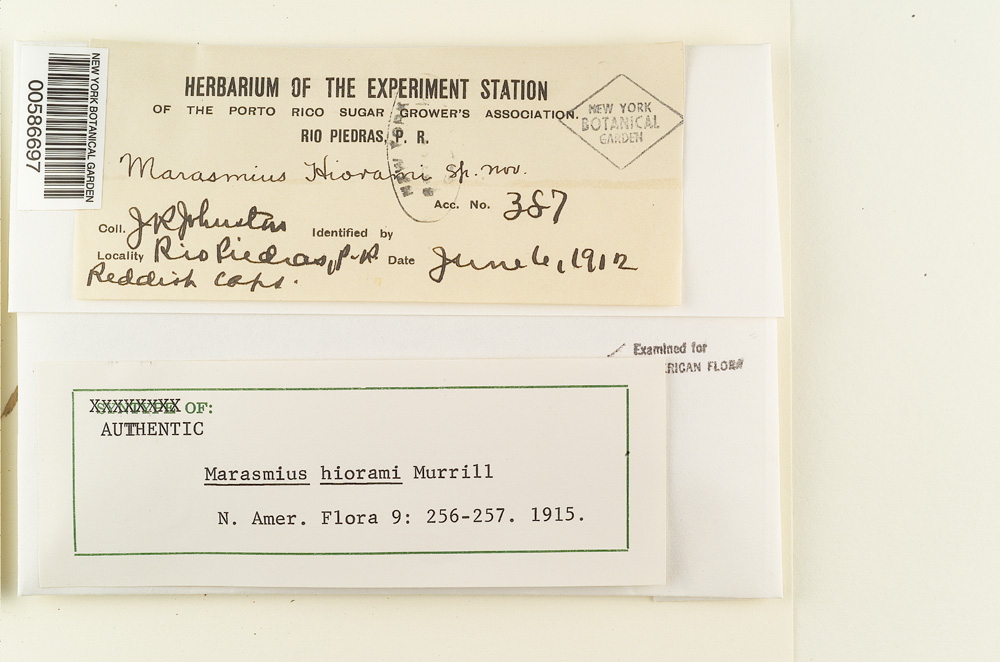 NEW YORK BOTANICAL GARDEN
00586697
HERBARIUM OF THE EXPERIMENT STATION
OF THE PORTO RICO SUGAR GROWER'S ASSOCIATION.
RIO PIEDRAS, P. R.
NEW YORK
BOTANICAL
GARDEN
NEW YORK
Marasmius Hiorami sp. nov.
Acc. No. 387
Coll. J R Johnston Identified by
Locality Rio Piedras, P.R. Date June 6, 1912
Reddish caps.
Examined for
RICAN FLORA
XXXXXXXX OF:
AUTHENTIC
Marasmius hiorami Murrill
N. Amer. Flora 9: 256-257. 1915.